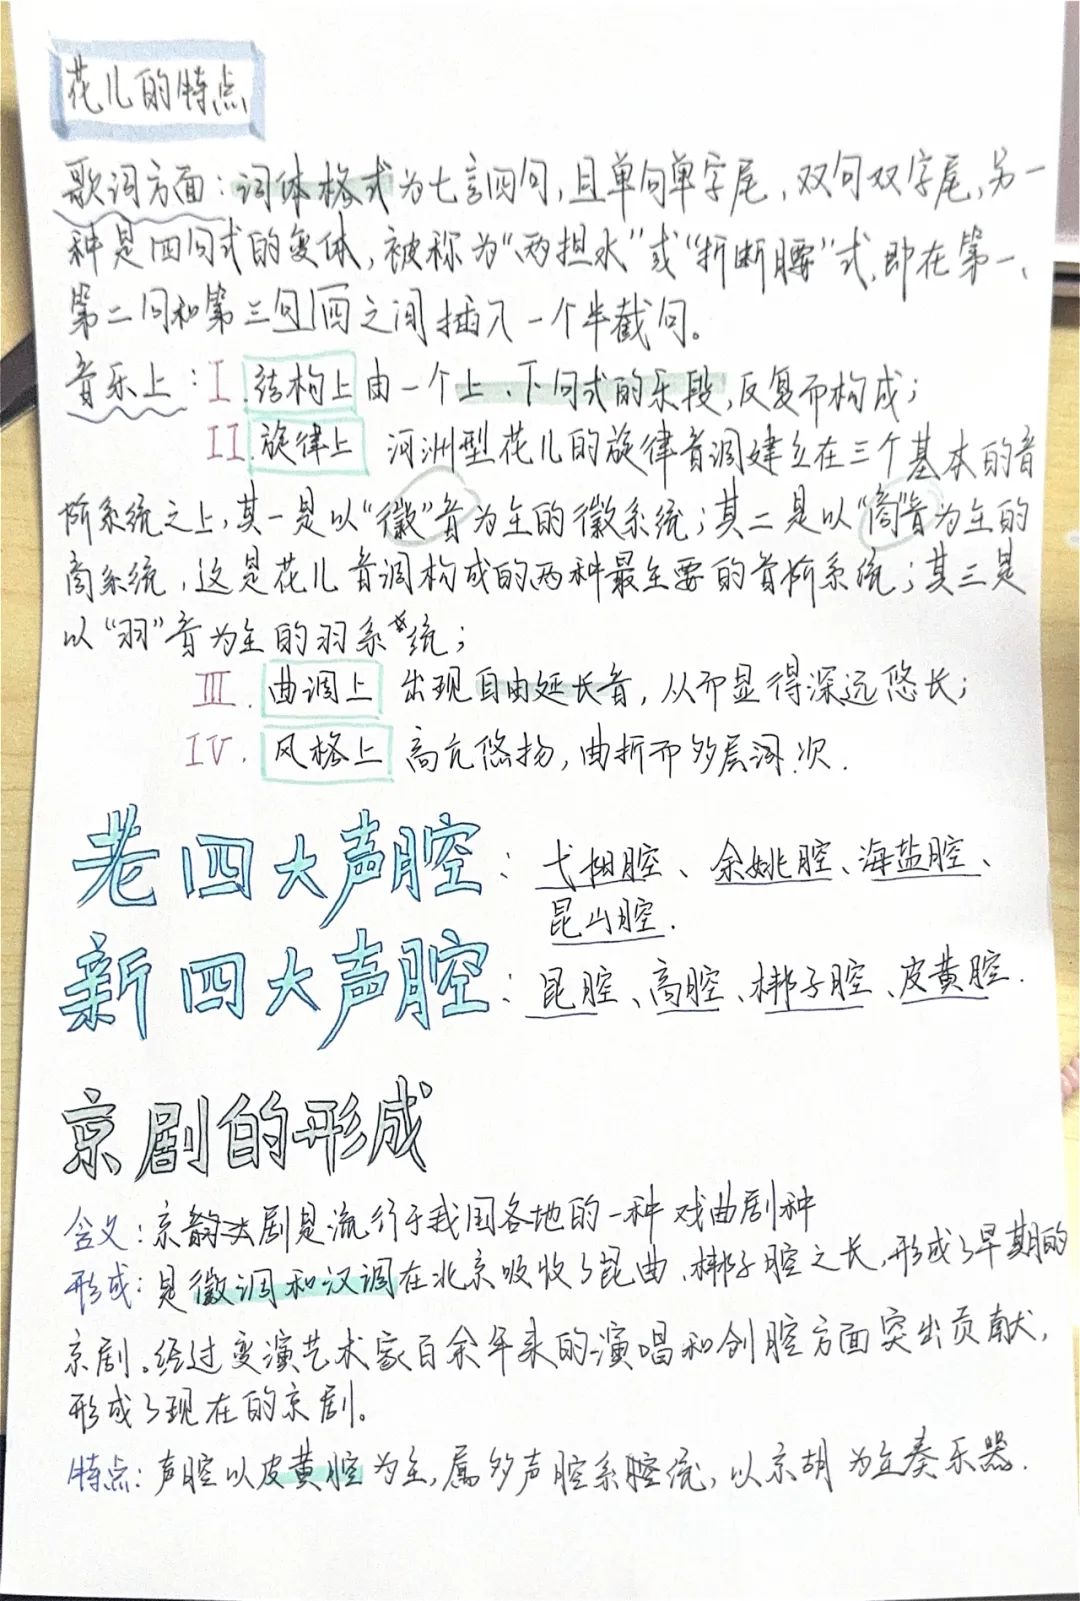 花儿的特点
歌词方面：词体格式为七言四句，且单句单字尾，双句双字尾，另一
种是四句式的变体，被称为“两担水”或“折断腰”式，即在第一、
第二句和第三句四之间插入一个半截句。
音乐上：I.结构上由一个上、下句式的乐段，反复而构成；
II.旋律上 河洲型花儿的旋律音调建立在三个基本的音
阶系统之上，其一是以“徵”音为主的徵系统；其二是以“商”音为主的
商系统，这是花儿音调构成的两种最主要的音阶系统；其三是
以“羽”音为主的羽系统；
III.曲调上 出现自由延长音，从而显得深远悠长；
IV.风格上 高亢悠扬，曲折而多层次.
老四大声腔：弋阳腔、余姚腔、海盐腔、
昆山腔.
新四大声腔：昆腔、高腔、梆子腔、皮黄腔.
京剧的形成
含义：京剧是流行于我国各地的一种戏曲剧种
形成：是徽调和汉调在北京吸收了昆曲、梆子腔之长，形成了早期的
京剧。经过变演艺术家百余年来的演唱和创腔方面突出贡献，
形成了现在的京剧。
特点：声腔以皮黄腔为主，属多声腔系腔统，以京胡为主奏乐器.